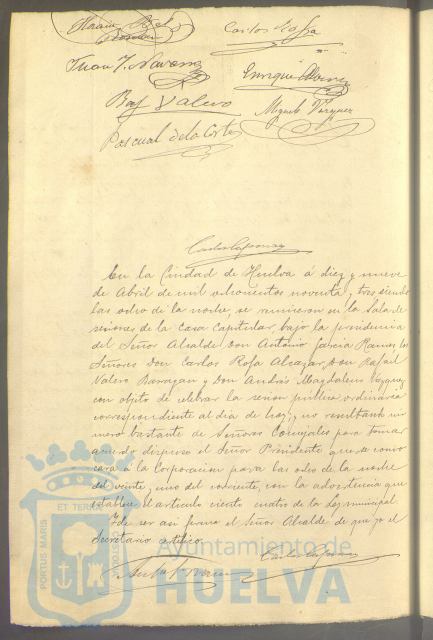 Carlos Rofa
Juan J. Navarro
Enrique
Raf Valero
Miguel Vazquez
Pascual de la Corte
En la Ciudad de Huelva á diez y nueve
de Abril de mil ochocientos noventa y tres, siendo
las ocho de la noche, se reunieron en la Sala de
sesiones de la Casa Capitular, bajo la presidencia
del Señor Alcalde Don Antonio García Ramos, los
Señores Don Carlos Rofa Alcazar, Don Rafael
Valero Barragan y Don Andrés Magdaleno Vazquez
con objeto de celebrar la sesion publica ordinaria
correspondiente al dia de hoy; y no resultando nu
mero bastante de Señores Concejales para tomar
acuerdo dispuso el Señor Presidente que se convo
cara á la Corporacion para las ocho de la noche
del veinte y uno del corriente, con la advertencia que
establece el artículo ciento cuatro de la Ley municipal.
Y de ser asi firma el Señor Alcalde de que yo el
Secretario certifico.
PORTUS MARIS ET TERRAE CUSTODIA
Ayuntamiento de
HUELVA